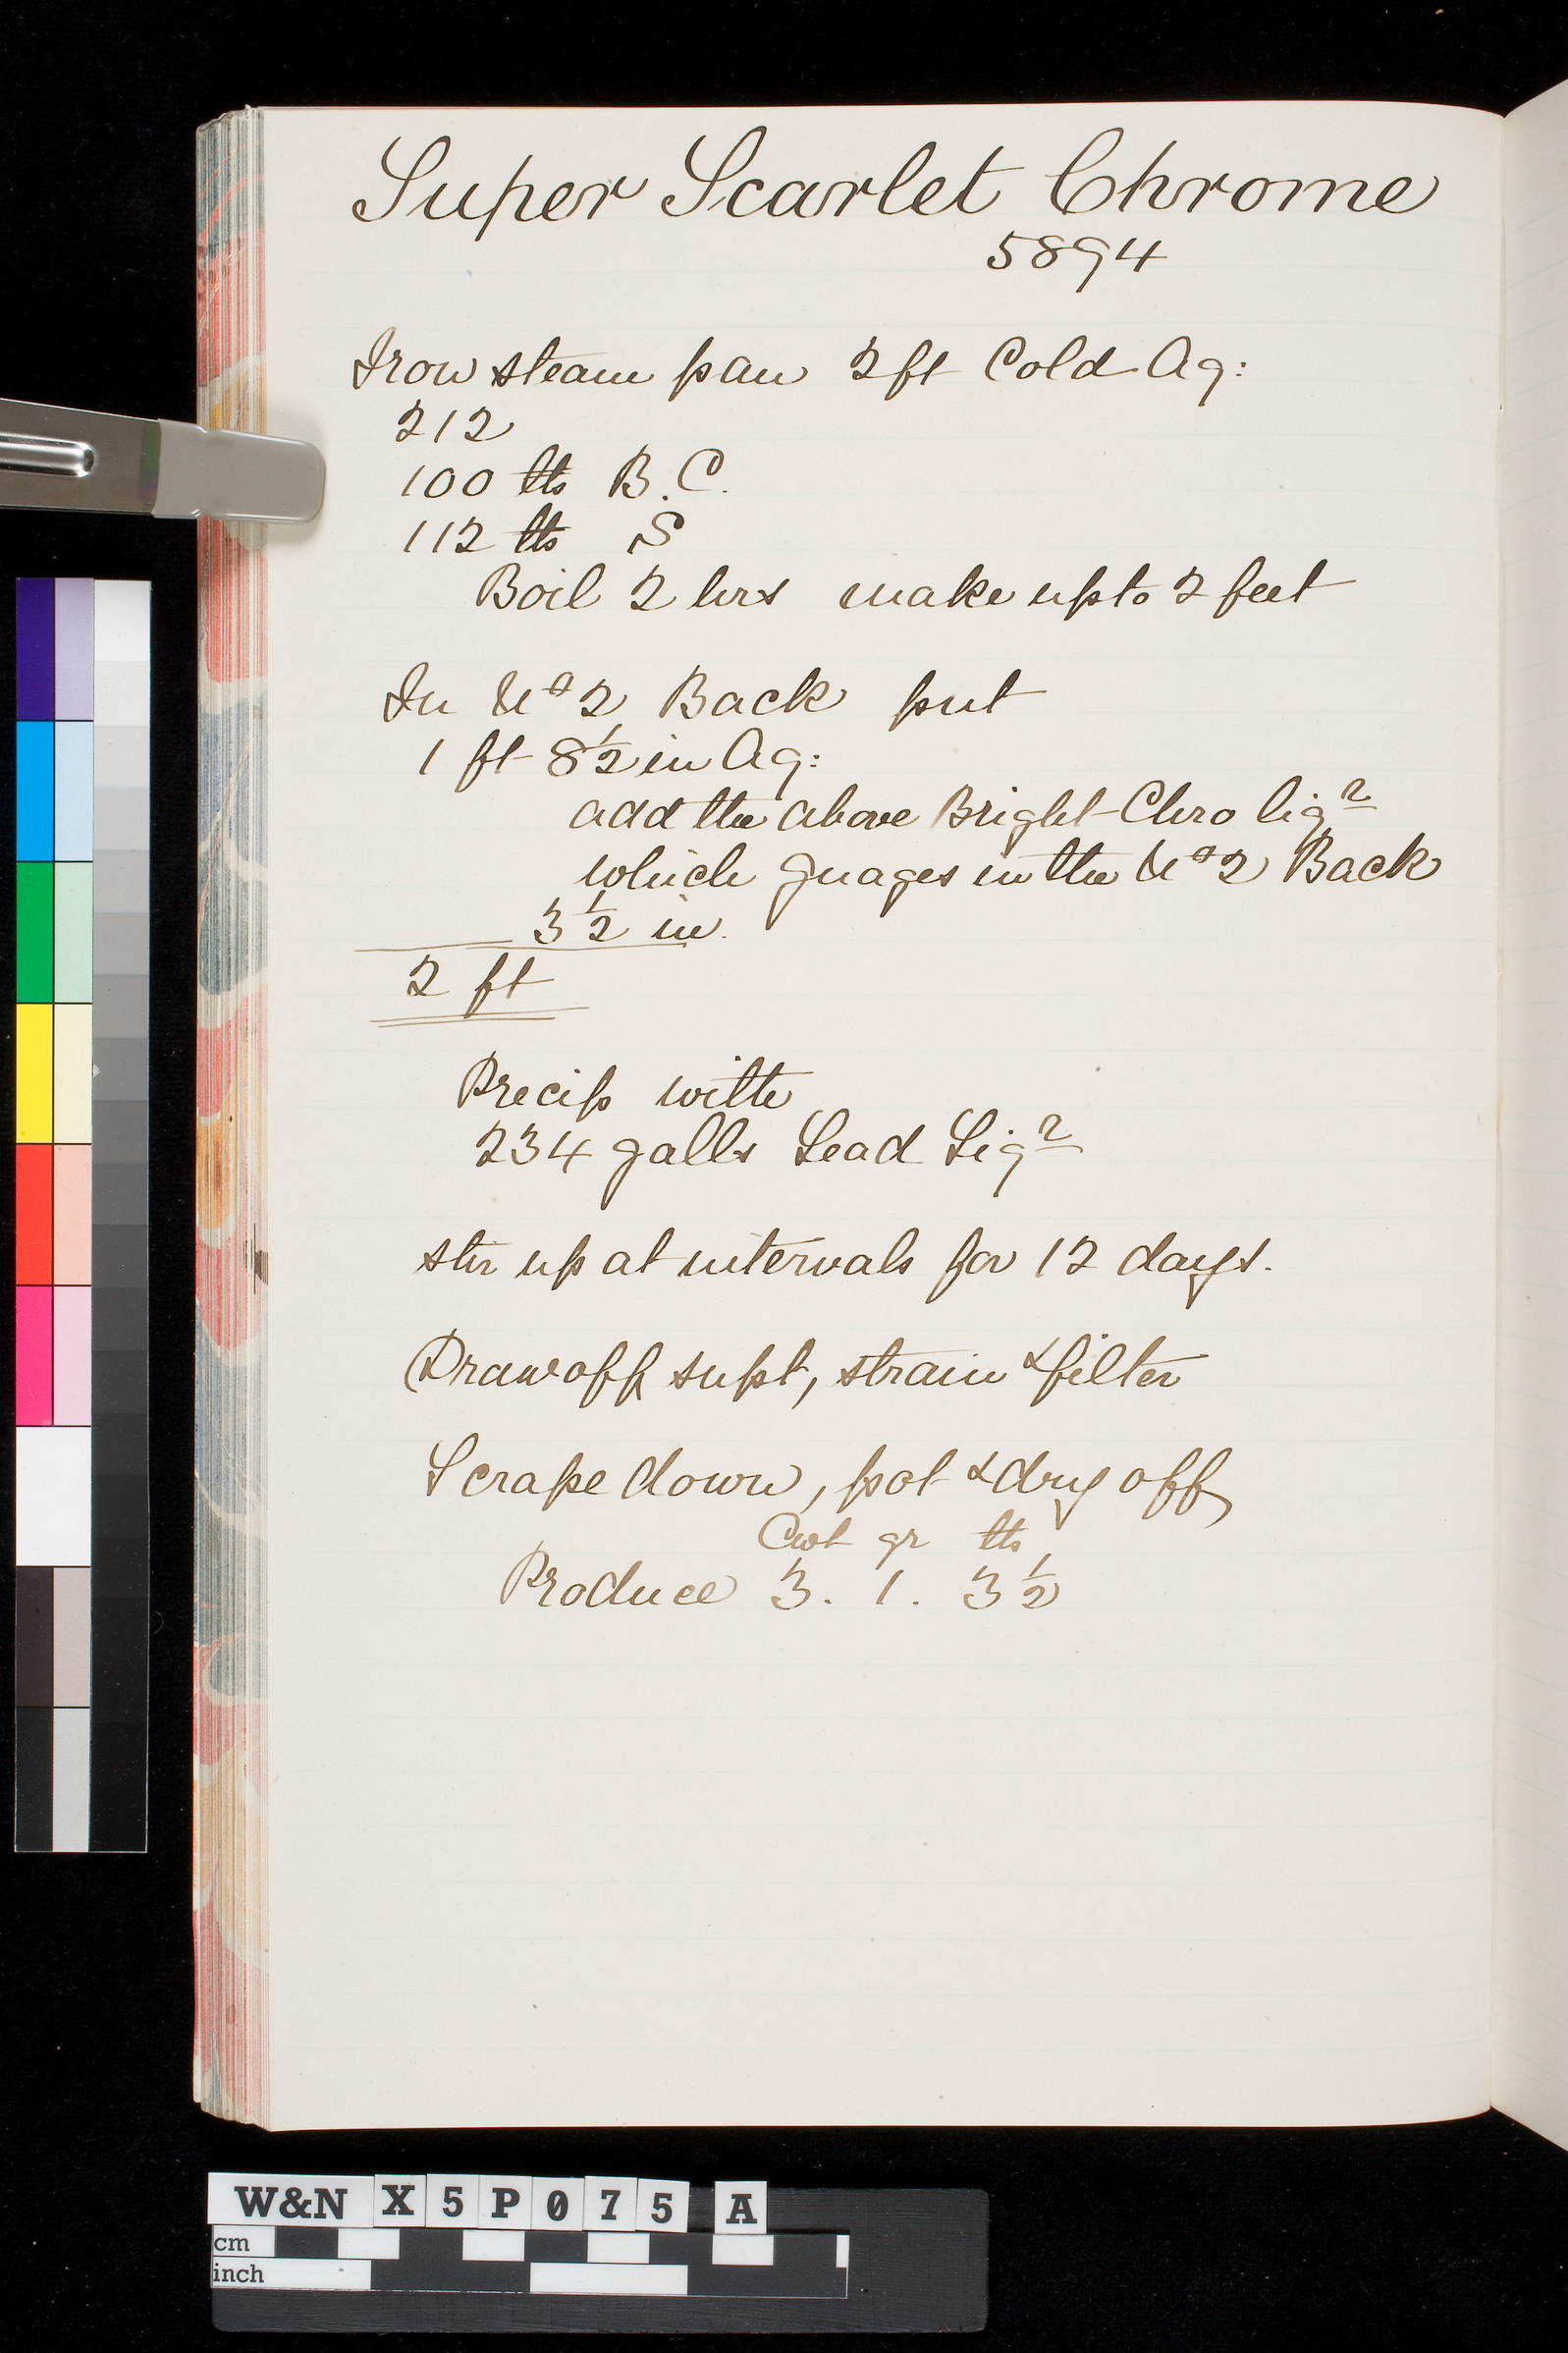 Super Scarlet Chrome
5894
Iron steam pan 2 ft Cold Aq:
212
100 lbs B.C.
112 lbs S
Boil 2 hrs make up to 2 feet
In No 2 Back put
1 ft 8 1/2 in Aq:
add the above Bright Chro liqr
which guages in the No 2 Back
3 1/2 in.
2 ft
Precip with
234 galls Lead Liqr
stir up at intervals for 12 days.
Draw off supt, strain & filter
Scrape down, pot & dry off
Cwt qr lbs
Produce 3. 1. 3 1/2
W&N X5P075 A
cm
inch